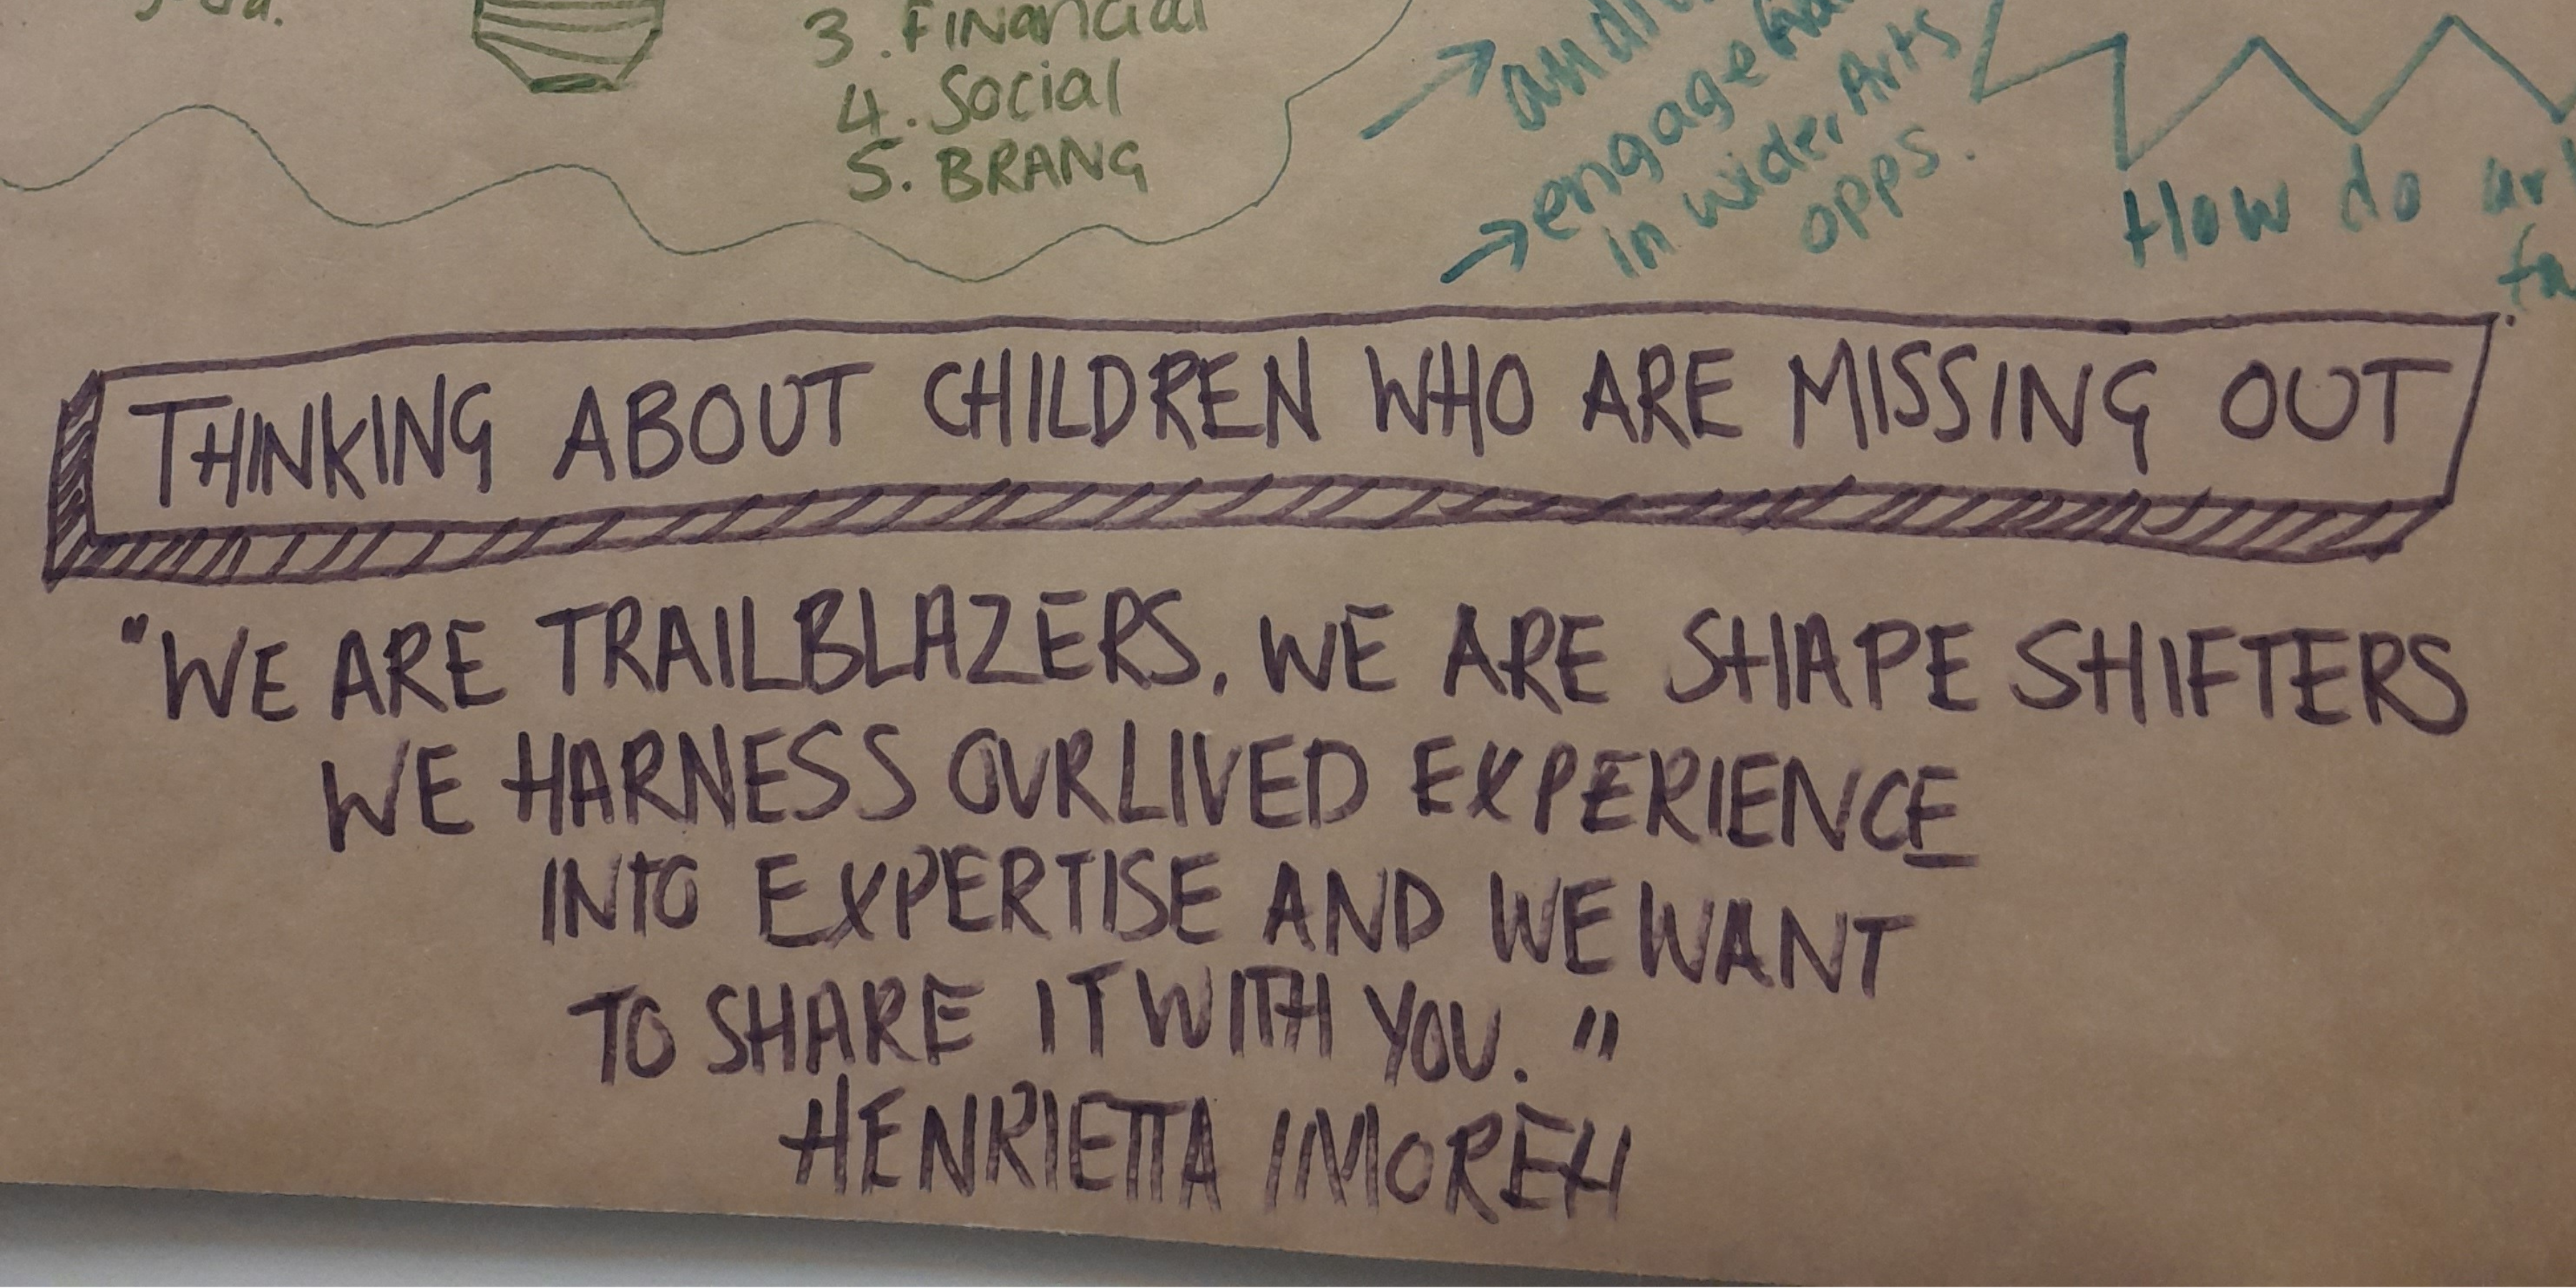 3. Financial
4. Social
5. BRANG
engage
in wider Arts
opps.
How do
THINKING ABOUT CHILDREN WHO ARE MISSING OUT
"WE ARE TRAILBLAZERS. WE ARE SHAPE SHIFTERS
WE HARNESS OUR LIVED EXPERIENCE
INTO EXPERTISE AND WE WANT
TO SHARE IT WITH YOU."
HENRIETTA IMOREH